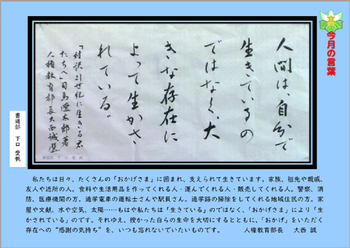 今月の言葉
人間は、自分で
生きているの
ではなく、大
きな存在に
よって生かさ
れている。
「対訳21世紀に生きる君
たちへ」司馬遼太郎著
人権教育部長大西誠選
書道部 下口
私たちは日々、たくさんの「おかげさま」に囲まれ、支えられて生きています。家族、祖先や親戚、
友人や近所の人。食料や生活用品を作ってくれる人・運んでくれる人・販売してくれる人。警察、消
防、医療機関の方。通学電車の運転士さんや駅員さん。通学路の掃除をしてくれる地域住民の方。家
屋や文献。水や空気、太陽……もはや私たちは「生きている」のではなく、「おかげさま」により「生
かされている」のです。それゆえ、授かった自らの生命を大切にするとともに、「おかげ」をいただく
存在への“感謝の気持ち”を、いつも忘れないでいたいものです。 人権教育部長 大西 誠